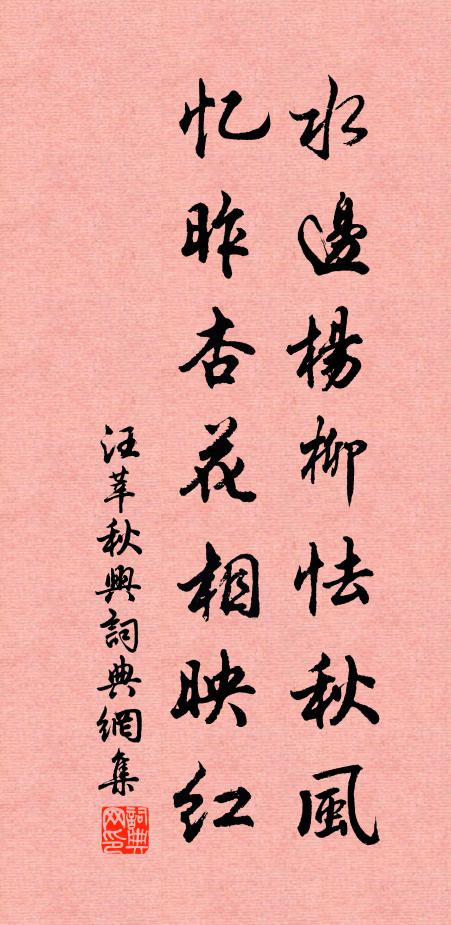 水邊楊柳怯秋風
忆昨杏花相映红
汪莘秋興詞典網集
詞典网印